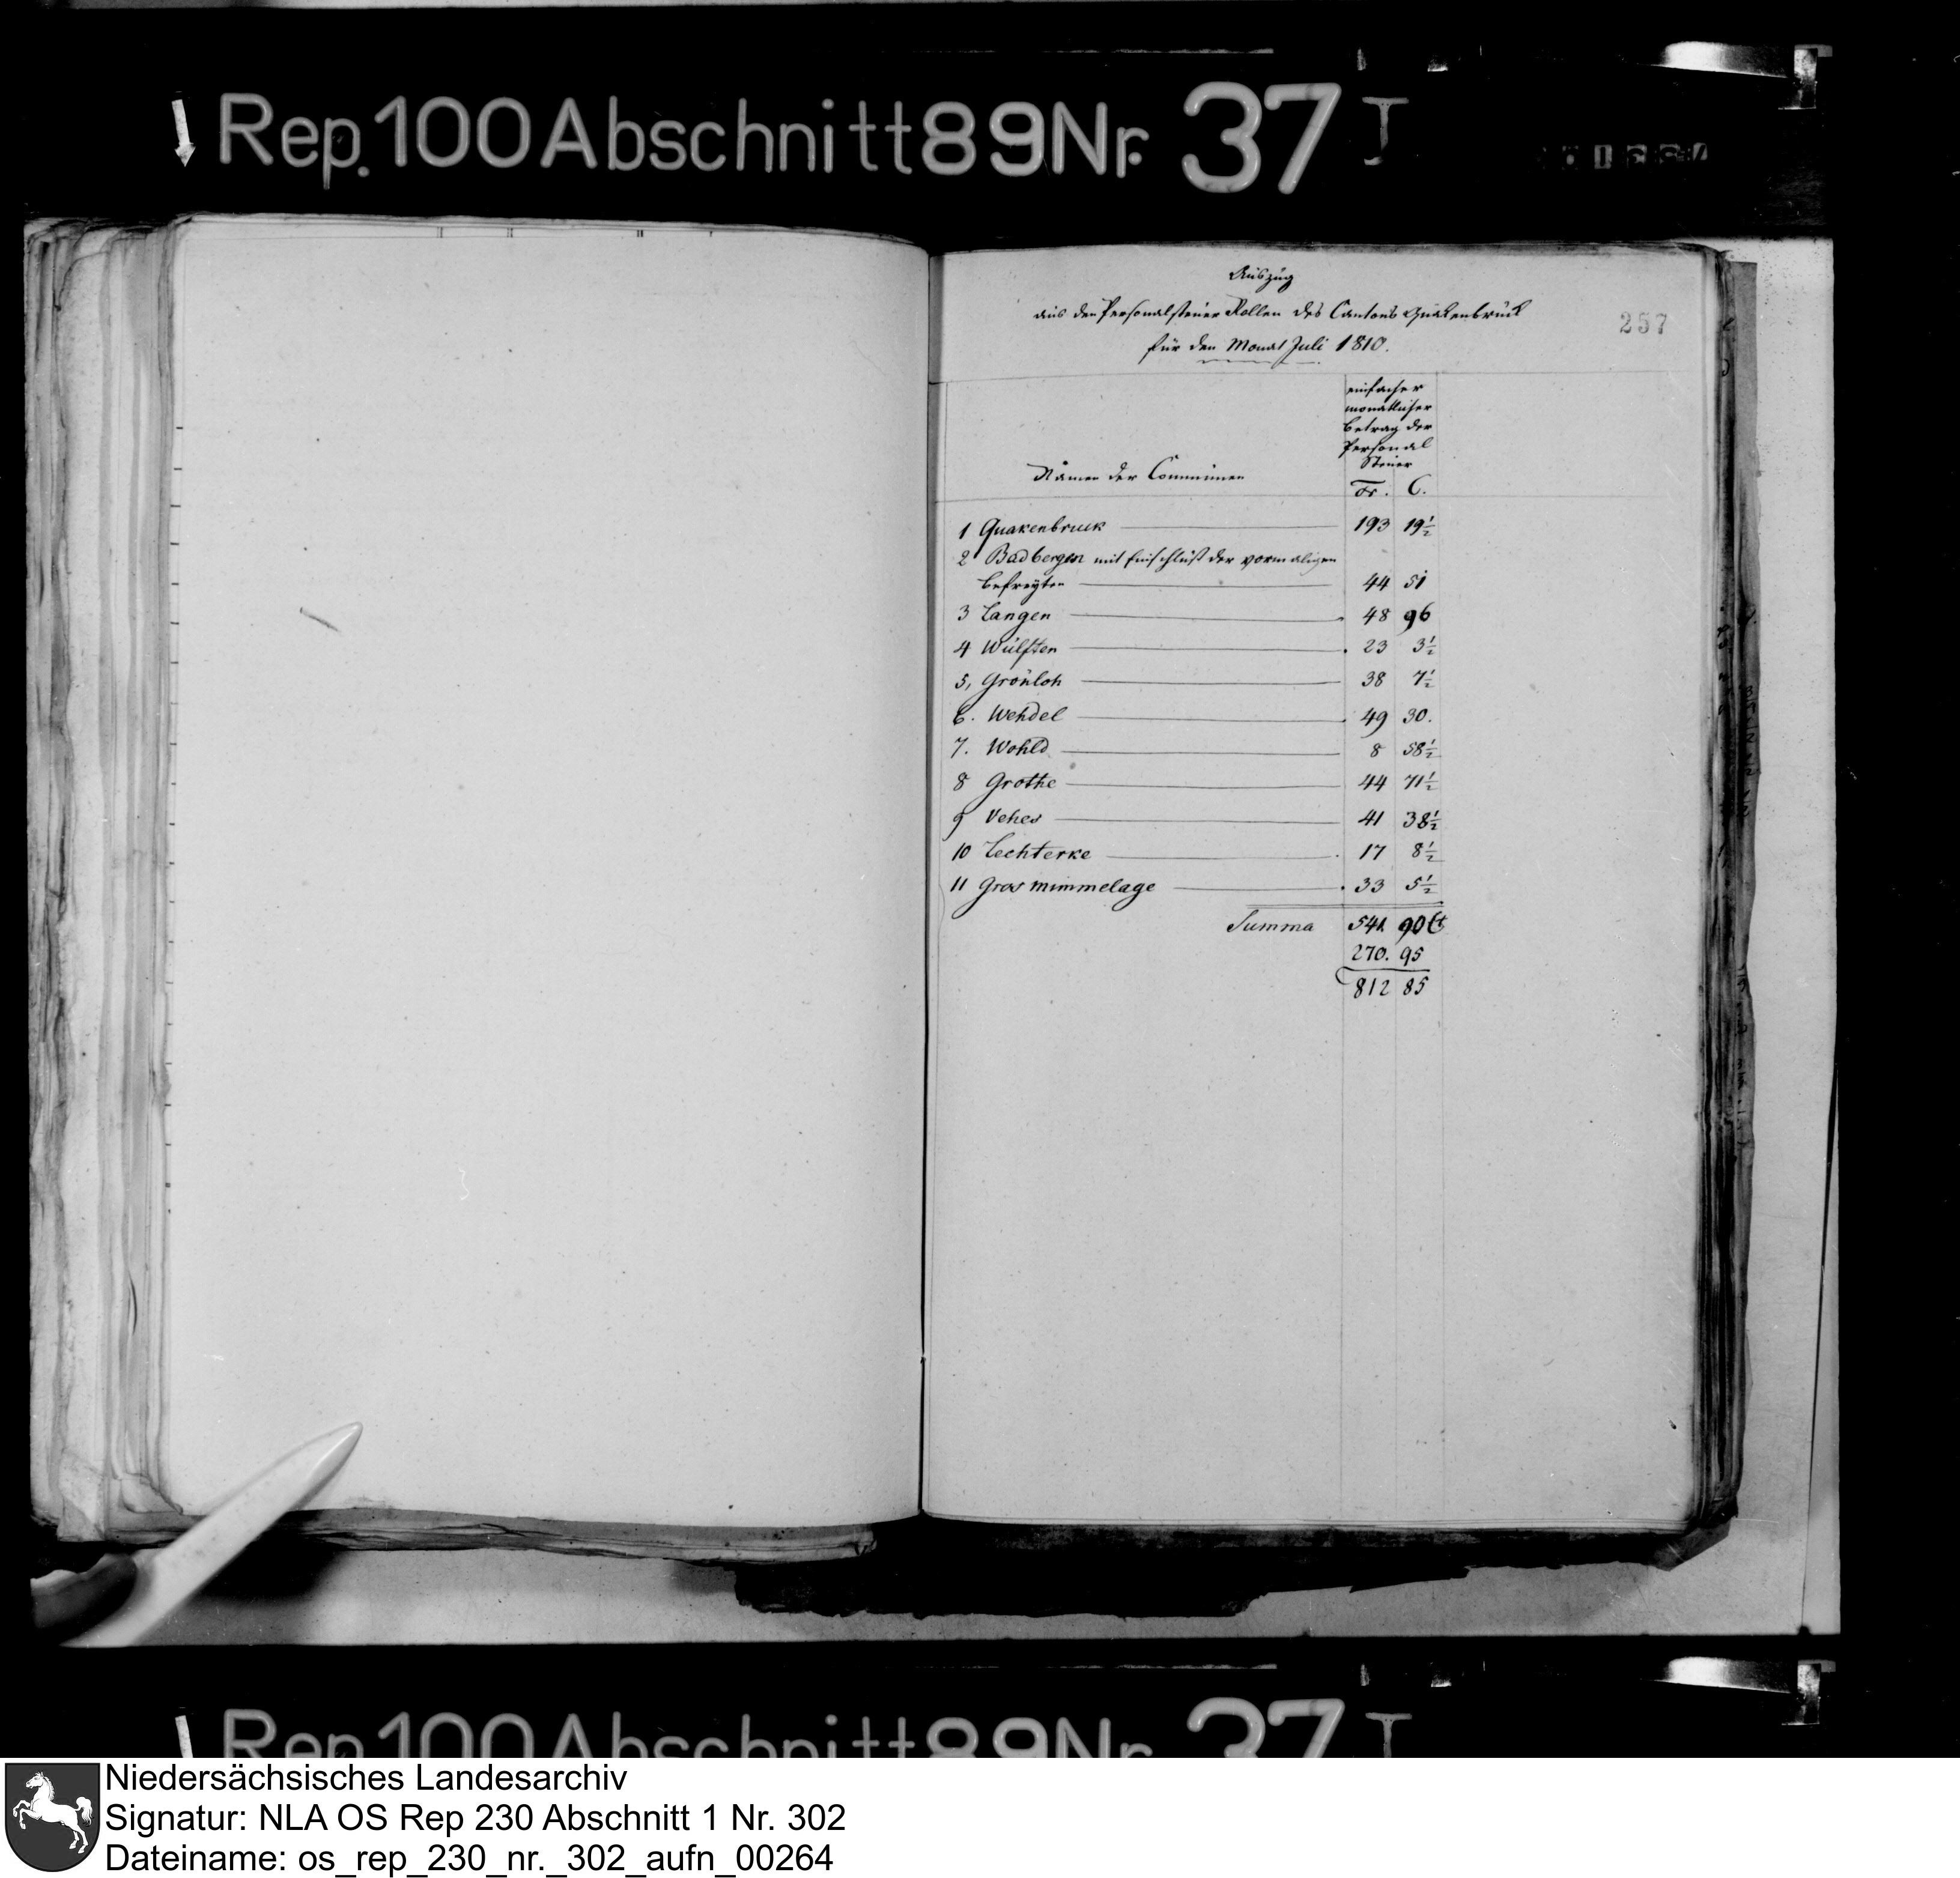 Rep. 100 Abschnitt 89 Nr. 37 I
Auszug
aus den Personalsteuer Rollen des Cantons Quakenbrück
für den Monat Juli 1810.
257
Namen der Communen
einfacher
monatlicher
Betrag der
Personal
Steuer
Fr. C.
1 Quakenbruck 193 19½
2 Badbergen mit Einschluß der vormaligen
befreyten 44 51
3 Langen 48 96
4 Wulften 23 3½
5, Grönloh 38 7½
6. Wehdel 49 30.
7. Wohld 8 58½
8 Grothe 44 71½
9 Vehes 41 38½
10 Lechterke 17 8½
11 Gros mimmelage 33 5½
Summa 541. 90 Ct
270. 95
812 85
Rep. 100 Abschnitt 89 Nr. 37 I
Niedersächsisches Landesarchiv
Signatur: NLA OS Rep 230 Abschnitt 1 Nr. 302
Dateiname: os_rep_230_nr._302_aufn_00264